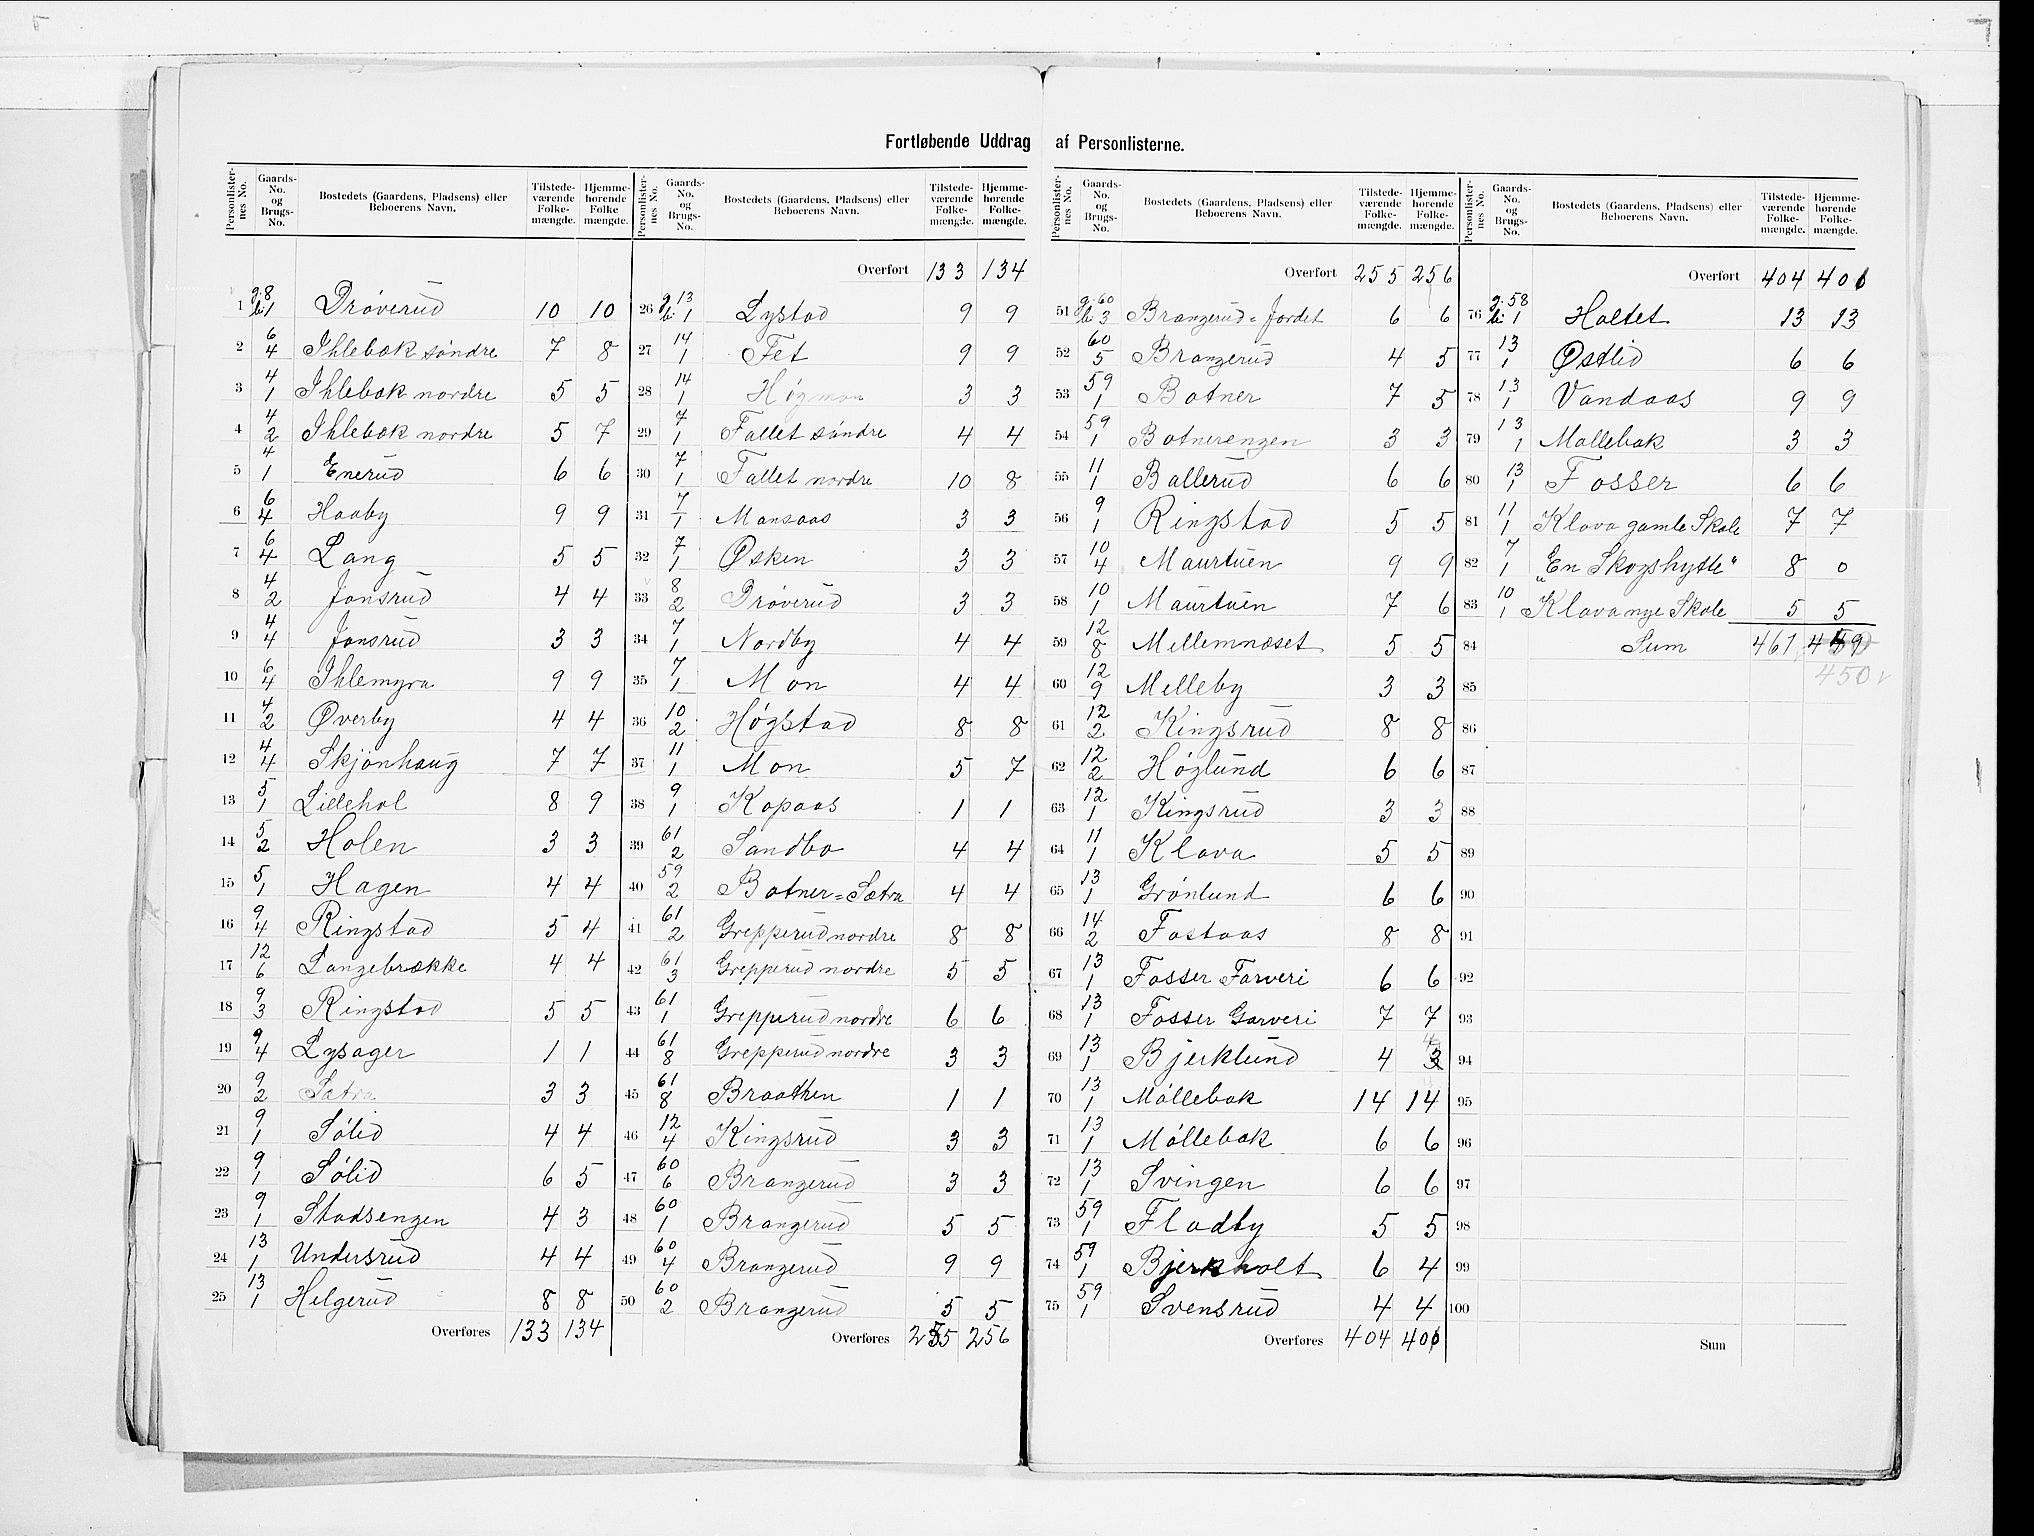 Fortløbende Uddrag af Personlisterne.
Personlister-nes No. | Gaards-No. og Brugs-No. | Bostedets (Gaardens, Pladsens) eller Beboerens Navn. | Tilstede-værende Folke-mængde. | Hjemme-hørende Folke-mængde.
1 g. 8 b. 1 Dröverud 10 10
2 6/4 Ihlebæk söndre 7 8
3 4/1 Ihlebæk nordre 5 5
4 4/2 Ihlebæk nordre 5 7
5 4/1 Enerud 6 6
6 6/4 Haaby 9 9
7 6/4 Lang 5 5
8 4/2 Jonsrud 4 4
9 4/4 Jonsrud 3 3
10 6/4 Ihlemyra 9 9
11 4/2 Øverby 4 4
12 4/4 Skjönhaug 7 7
13 5/1 Lidehol 8 9
14 5/2 Holen 3 3
15 5/1 Hagen 4 4
16 9/4 Ringstad 5 4
17 12/6 Langebrække 4 4
18 9/3 Ringstad 5 5
19 9/4 Lysager 1 1
20 9/2 Sætra 3 3
21 9/1 Sølid 4 4
22 9/1 Sølid 6 5
23 9/1 Stadsengen 4 3
24 13/1 Undersrud 4 4
25 13/1 Helgerud 8 8
Overføres 133 134
Personlister-nes No. | Gaards-No. og Brugs-No. | Bostedets (Gaardens, Pladsens) eller Beboerens Navn. | Tilstede-værende Folke-mængde. | Hjemme-hørende Folke-mængde.
Overført 133 134
26 g. 13 b. 1 Lystad 9 9
27 14/1 Fet 9 9
28 14/1 Høgmon 3 3
29 7/1 Fallet söndre 4 4
30 7/1 Fallet nordre 10 8
31 7/1 Mansaas 3 3
32 7/1 Øsken 3 3
33 8/2 Dröverud 3 3
34 7/1 Nordby 4 4
35 7/1 Mon 4 4
36 10/2 Høgstad 8 8
37 11/1 Mon 5 7
38 9/1 Kopaas 1 1
39 61/2 Sandbo 4 4
40 59/2 Botner=Sætra 4 4
41 61/2 Grepperud nordre 8 8
42 61/3 Grepperud nordre 5 5
43 61/1 Grepperud nordre 6 6
44 61/8 Grepperud nordre 3 3
45 61/8 Braathen 1 1
46 12/4 Kingsrud 3 3
47 60/6 Brangerud 3 3
48 60/1 Brangerud 5 5
49 60/4 Brangerud 9 9
50 60/2 Brangerud 5 5
Overføres 255 256
Personlister-nes No. | Gaards-No. og Brugs-No. | Bostedets (Gaardens, Pladsens) eller Beboerens Navn. | Tilstede-værende Folke-mængde. | Hjemme-hørende Folke-mængde.
Overført 255 256
51 g. 60 b. 3 Brangerud=Jordet 6 6
52 60/5 Brangerud 4 5
53 59/1 Botner 7 5
54 59/1 Botnerengen 3 3
55 11/1 Ballerud 6 6
56 9/1 Ringstad 5 5
57 10/4 Maurtuen 9 9
58 10/1 Maurtuen 7 6
59 12/8 Mellemnæset 5 5
60 12/9 Melleby 3 3
61 12/2 Kingsrud 8 8
62 12/2 Høglund 6 6
63 12/1 Kingsrud 3 3
64 11/1 Klava 5 5
65 13/1 Grönlund 6 6
66 14/2 Fostaas 8 8
67 13/1 Fosser Farveri 6 6
68 13/1 Fosser Garveri 7 7
69 13/1 Bjerklund 4 3 4
70 13/1 Möllebæk 14 14
71 13/1 Møllebæk 6 6
72 13/1 Svingen 6 6
73 59/1 Fladby 5 5
74 59/1 Bjerkholt 6 4
75 59/1 Svensrud 4 4
Overføres 404 401
Personlister-nes No. | Gaards-No. og Brugs-No. | Bostedets (Gaardens, Pladsens) eller Beboerens Navn. | Tilstede-værende Folke-mængde. | Hjemme-hørende Folke-mængde.
Overført 404 401
76 g. 58 b. 1 Holtet 13 13
77 13/1 Østlid 6 6
78 13/1 Vandaas 9 9
79 13/1 Møllebæk 3 3
80 13/1 Fosser 6 6
81 11/1 Klava gamle Skole 7 7
82 7/1 „En Skogshytte" 8 0
83 10/1 Klava nye Skole 5 5
84 Sum 461
450
85
86
87
88
89
90
91
92
93
94
95
96
97
98
99
100
Sum